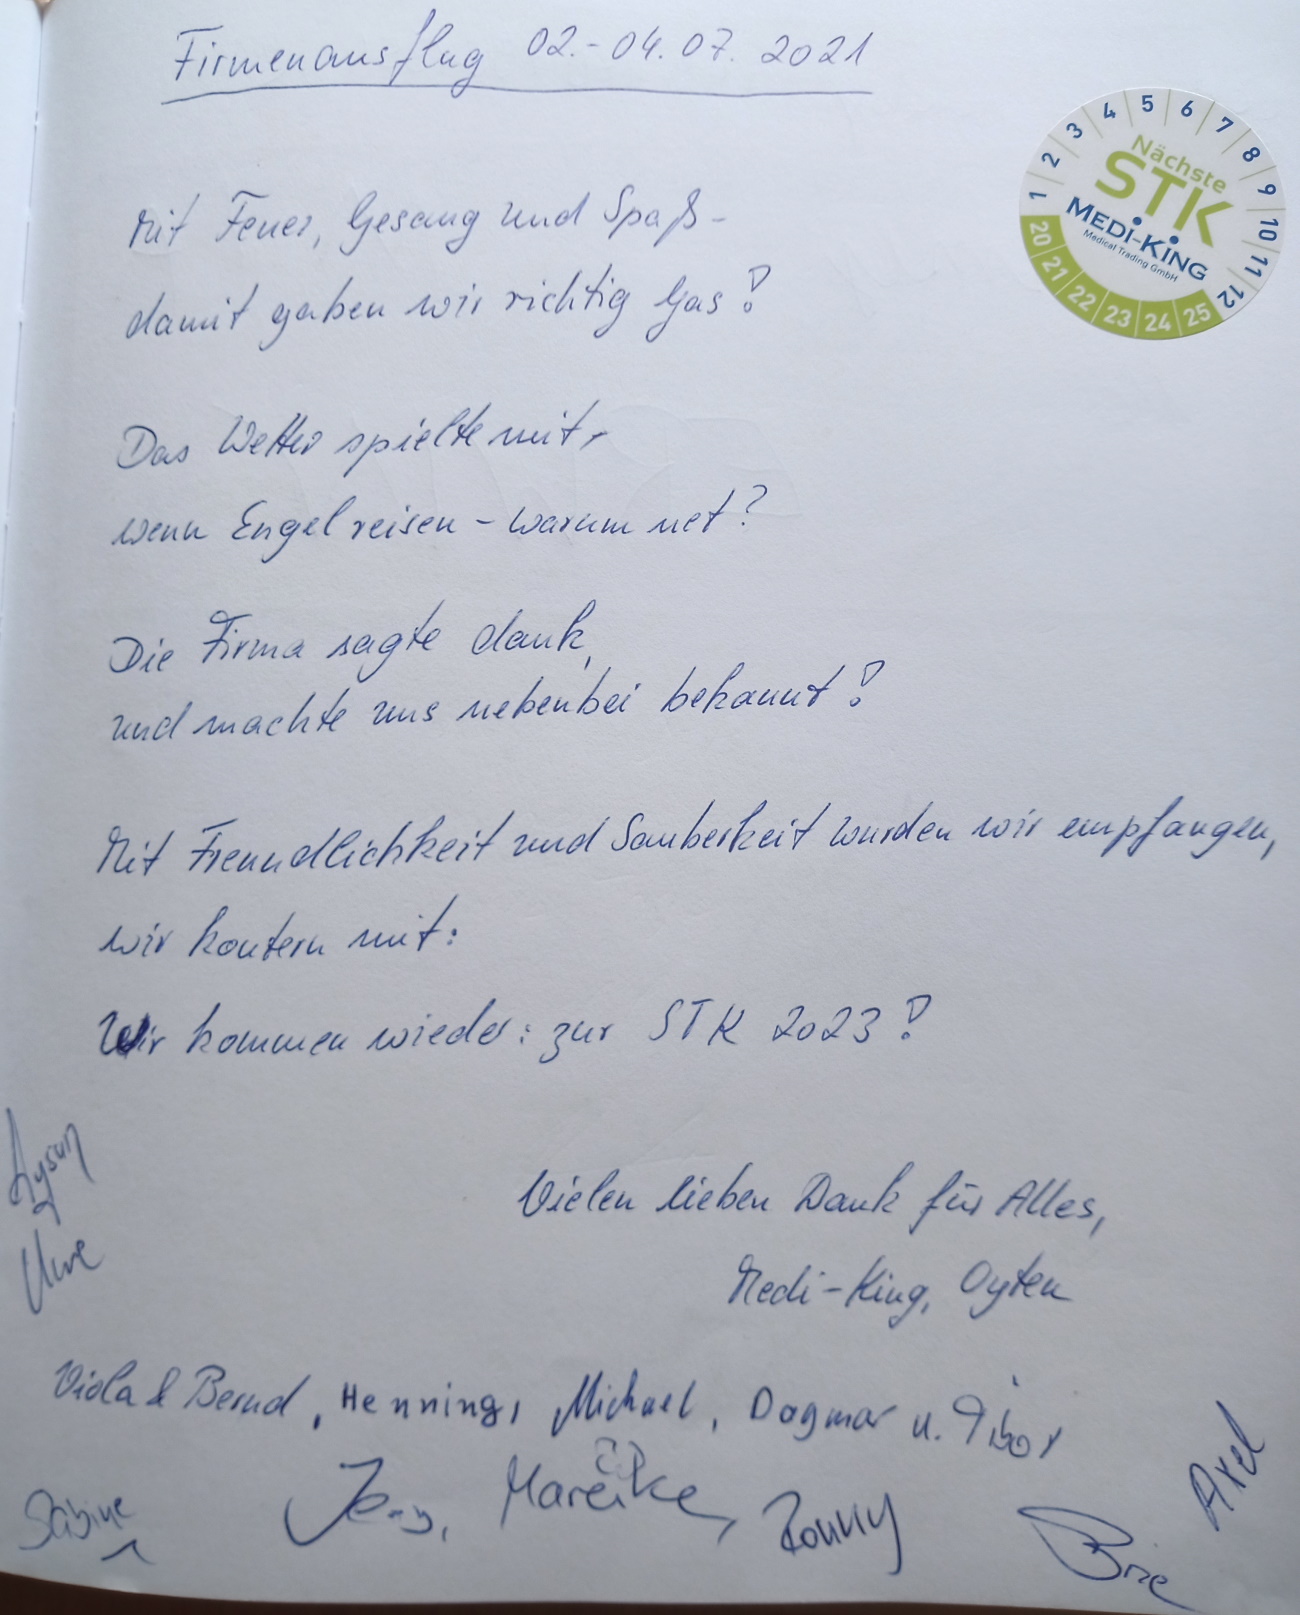 Firmenausflug 02.-04.07.2021
Mit Feuer, Gesang und Spaß -
damit gaben wir richtig Gas!
Das Wetter spielte mit,
wenn Engel reisen - warum net?
Die Firma sagte dank,
und machte uns nebenbei bekannt!
Mit Freundlichkeit und Sauberkeit wurden wir empfangen,
wir kontern mit:
Wir kommen wieder: zur STK 2023!
Vielen lieben Dank für Alles,
Medi-King, Oyten
Aysun
Uwe
Viola & Bernd, Henning, Michael, Dagmar u. Tibor
Sabine
Jens, Mareike, Ronny
Axel
1 2 3 4 5 6 7 8 9 10 11 12
Nächste
STK
MEDI-KING
Medical Trading GmbH
20 21 22 23 24 25